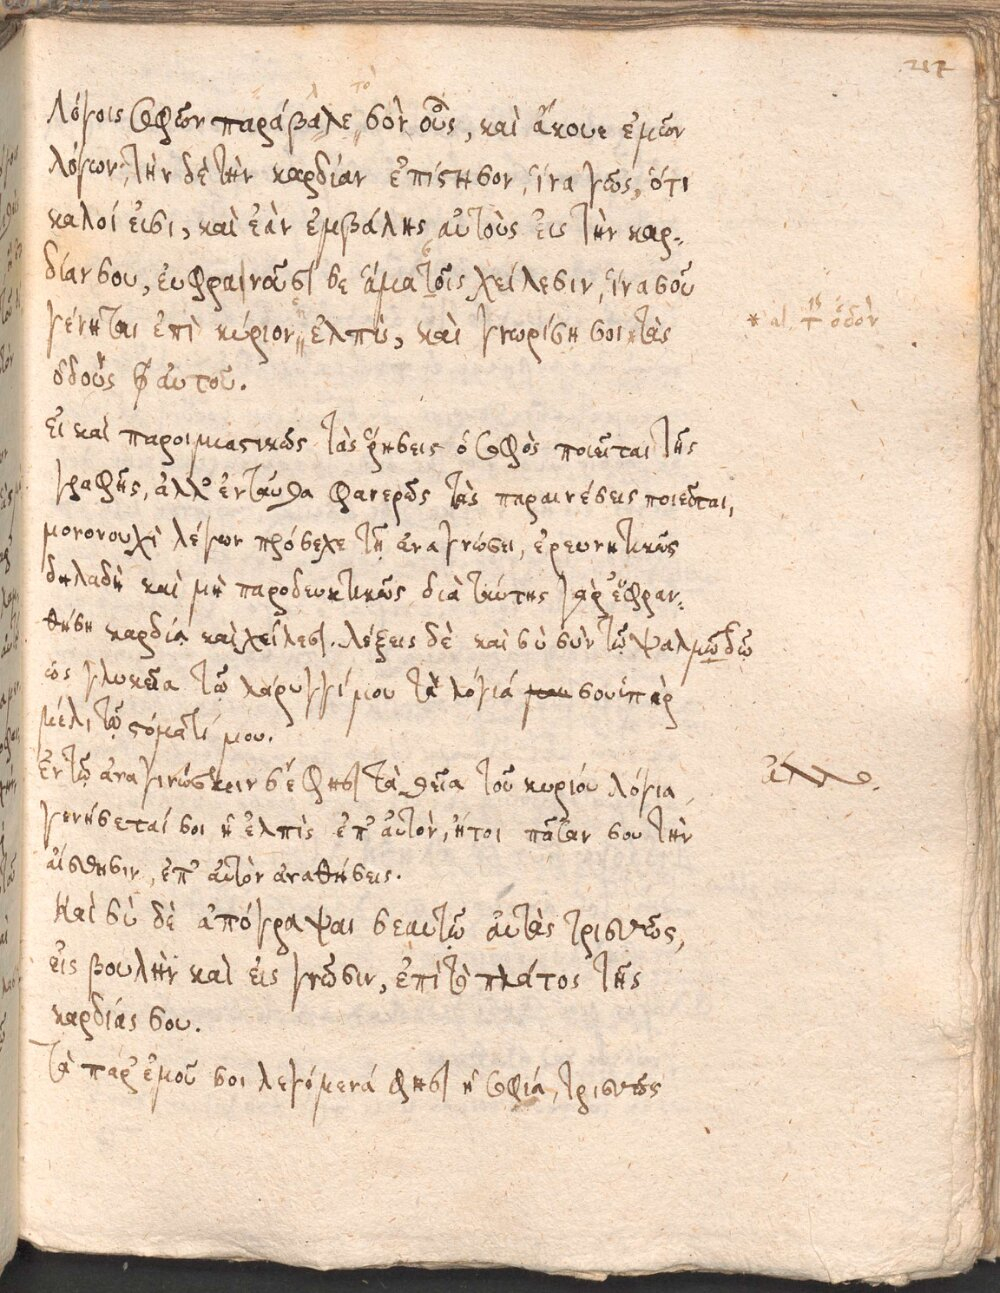 217
Λόγοις σοφῶν παράβαλε σὸν οὖς, καὶ ἄκουε ἐμῶν
λόγων, τὴν δὲ τὴν καρδίαν ἐπίστησον, ἵνα γνῷς, ὅτι
καλοί εἰσι, καὶ ἐὰν ἐμβάλῃς αὐτοὺς εἰς τὴν καρ-
δίαν σου, εὐφραινοῦσί σε ἅμα τοῖς χείλεσιν, ἵνα σοῦ
γένηται ἐπὶ κύριον ἐλπίς, καὶ γνωρίσῃ σοι τὰς
* τὴν ὁδὸν
ὁδοὺς αὐτοῦ.
Εἰ καὶ παροιμιαστικῶς τὰς ῥήσεις ὁ σοφὸς ποιεῖται τῆς
γραφῆς, ἀλλ' ἐνταῦθα φανερῶς τὰς παραινέσεις ποιεῖται,
μονονουχὶ λέγων πρόσεχε τῇ ἀναγνώσει, ἐρευνητικῶς
δηλαδὴ καὶ μὴ παροδευτικῶς διὰ ταύτης γὰρ εὐφραν-
θήσῃ καρδίᾳ καὶ χείλεσι. λέξεις δὲ καὶ σὺ σὺν τῷ ψαλμῳδῷ
ὡς γλυκέα τῷ λάρυγγί μου τὰ λόγιά σου ὑπὲρ
μέλι τῷ στόματί μου.
Ἐν τῷ ἀναγινώσκειν σέ φησι τὰ θεῖα τοῦ κυρίου λόγια,
ἄλλο.
γενήσεταί σοι ἡ ἐλπὶς ἐπ' αὐτὸν, ἤτοι πᾶσαν σου τὴν
αἴσθησιν, ἐπ' αὐτὸν ἀναθήσεις.
Καὶ σὺ δὲ ἀπόγραψαι σεαυτῷ αὐτὰς τρισσῶς,
εἰς βουλὴν καὶ εἰς γνῶσιν, ἐπὶ τὸ πλάτος τῆς
καρδίας σου.
Τὰ παρ' ἐμοῦ σοι λεγόμενά φησι ἡ σοφία, τρισσῶς